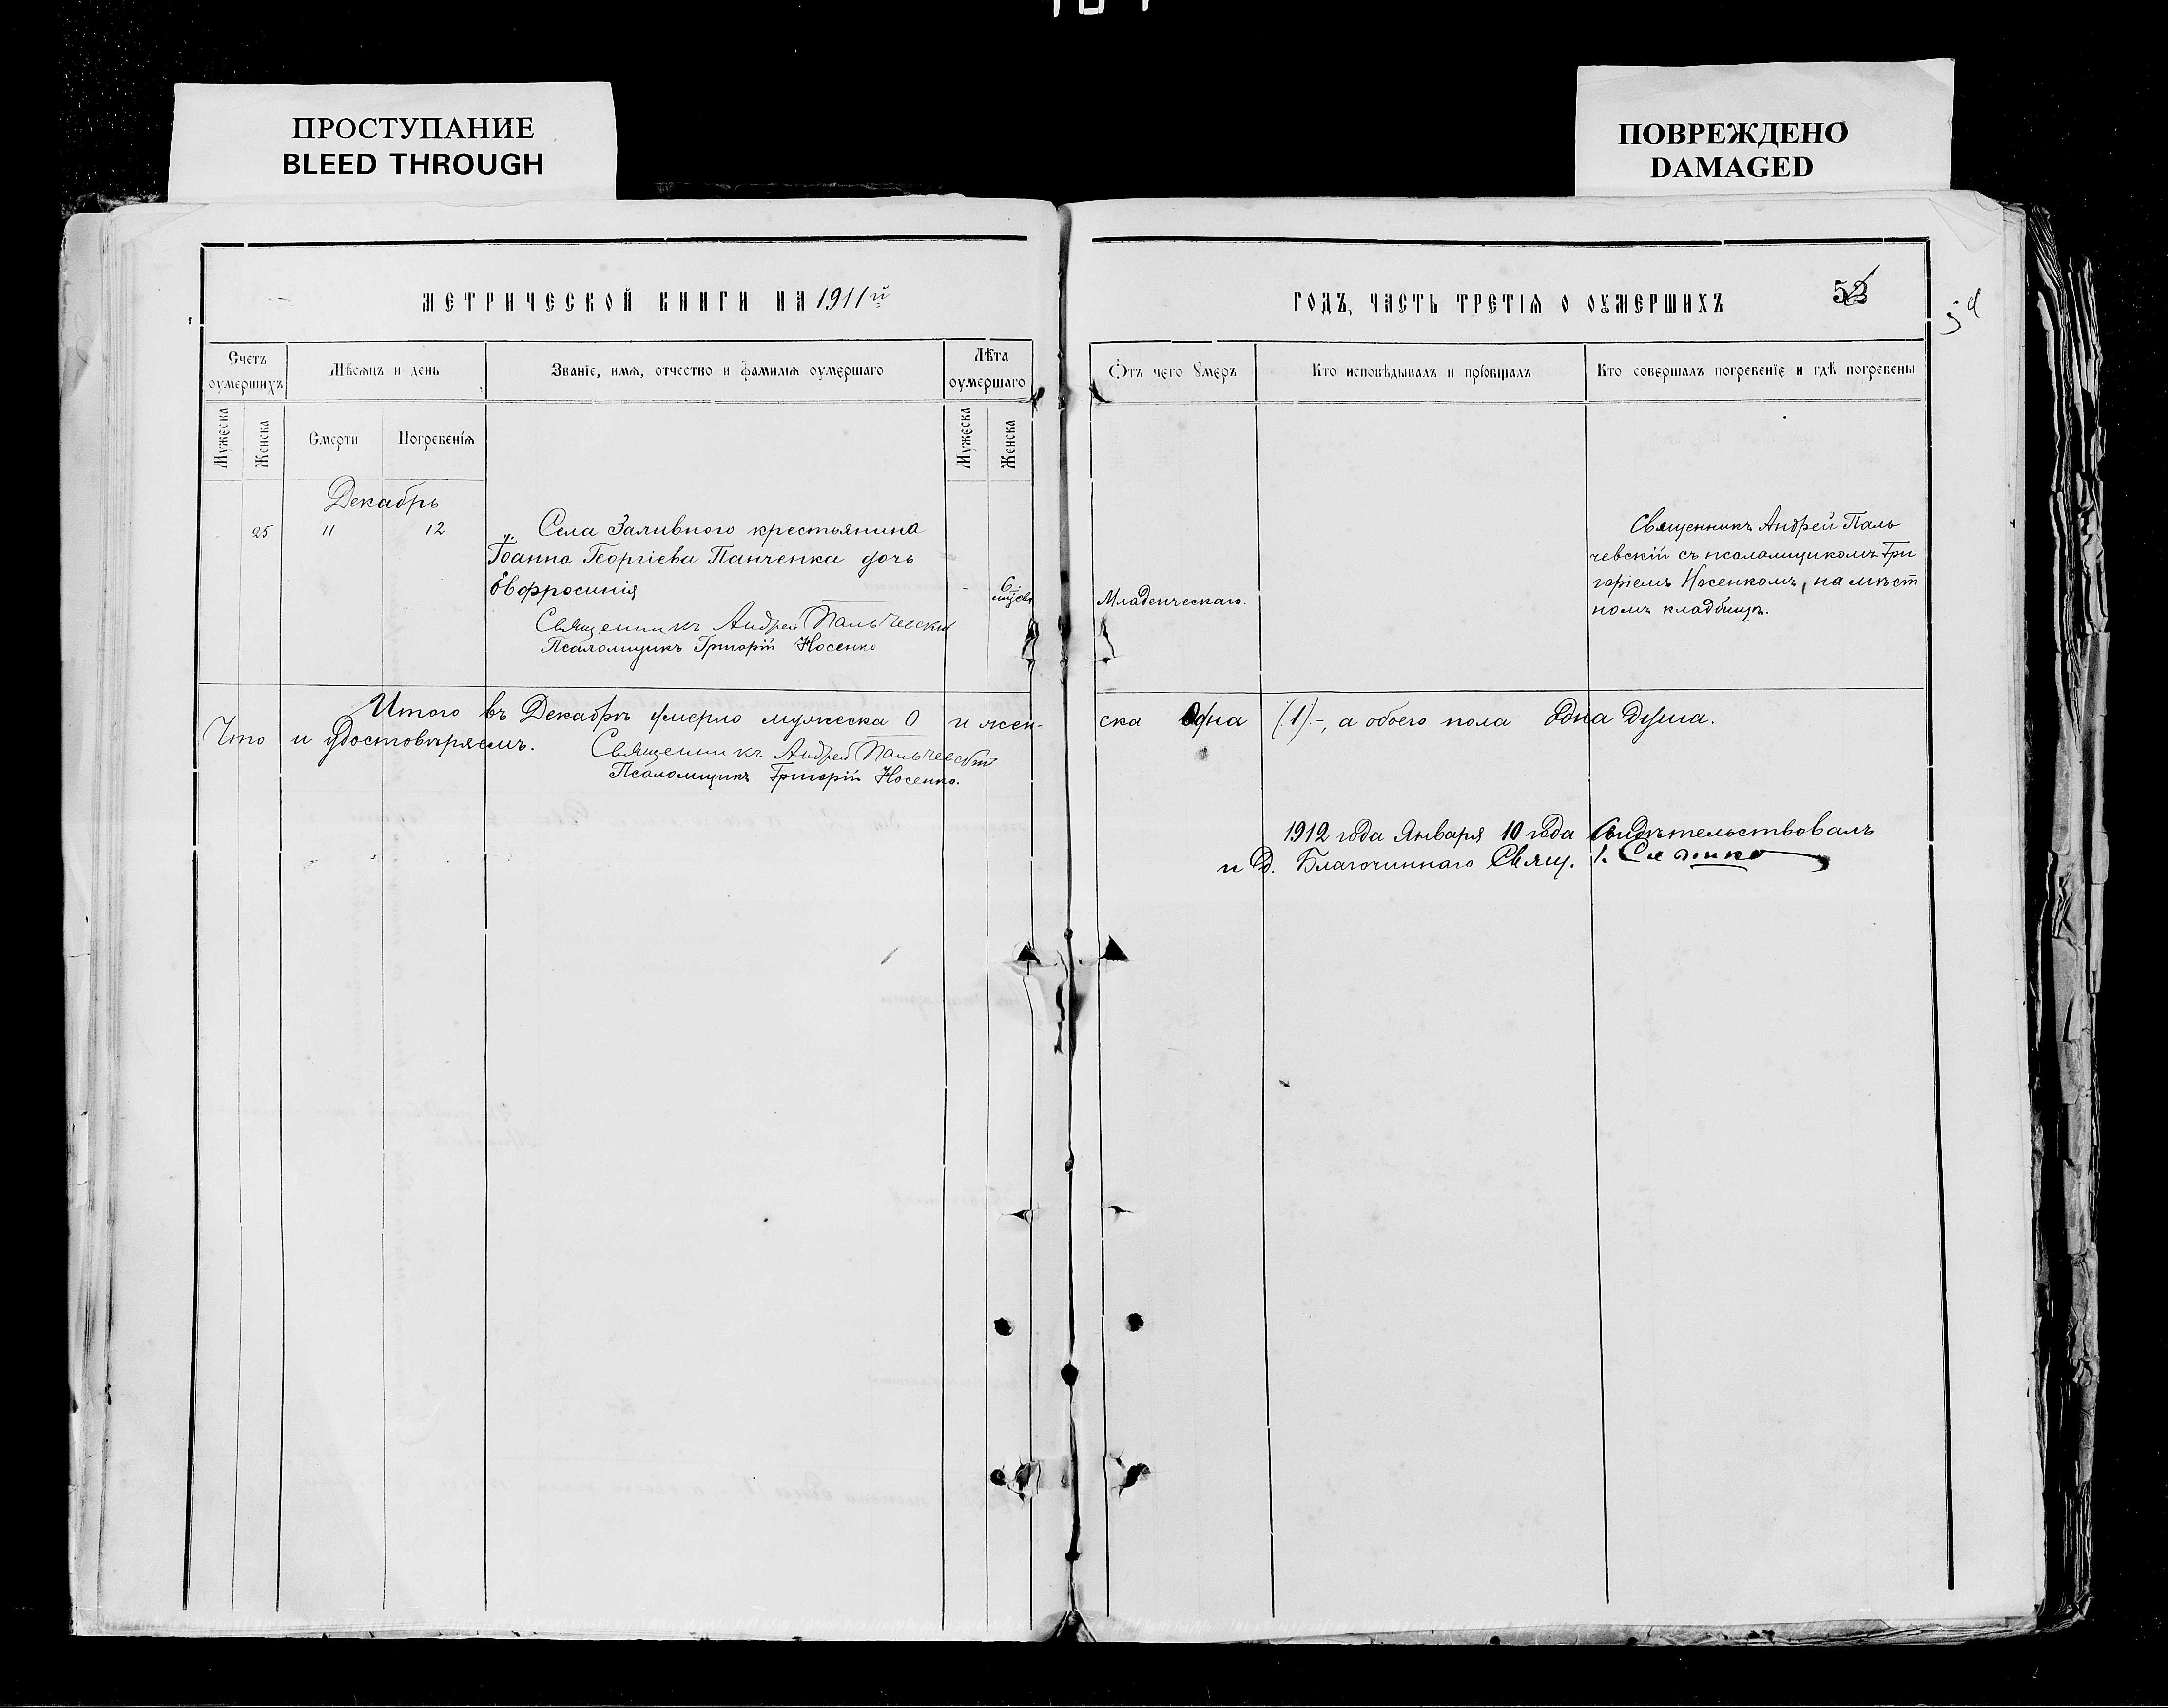 ПРОСТУПАНИЕ
BLEED THROUGH
ПОВРЕЖДЕНО
DAMAGED
МЕТРИЧЕСКОЙ КНИГИ НА 1911й
ГОДЪ, ЧАСТЬ ТРЕТІЯ О ОУМЕРШИХЪ
Счетъ оумершихъ
Мѣсяцъ и день
Званіе, имя, отчество и фамилія оумершаго
Лѣта оумершаго
Отъ чего умеръ
Кто исповѣдывалъ и пріобщалъ
Кто совершалъ погребеніе и гдѣ погребены
Мужеска
Женска
Смерти
Погребенія
Мужеска
Женска
Декабрь
- 25 11 12
Села Заливного крестьянина
Іоанна Георгіева Панченка дочь
Евфросинія
- 6
Младенческаго.
Священникъ Андрей Паль
чевскій съ псаломщикомъ Гри
горіемъ Носенкомъ, на мѣст
номъ кладбищѣ.
Священникъ Андрей Пальчевскій
Псаломщикъ Григорій Носенко
Итого въ Декабрѣ умерло мужеска 0 и жен-
ска Одна (1) -, а обоего пола Одна Душа.
Что и удостовѣряемъ.
Священникъ Андрей Пальчевскій
Псаломщикъ Григорій Носенко.
1912 года Января 10 года Свидѣтельствовалъ
и Д. Благочиннаго Свящ. І.